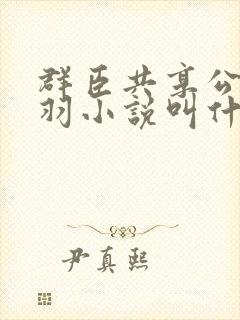 群臣共享公
羽小說叫什
尹真熙